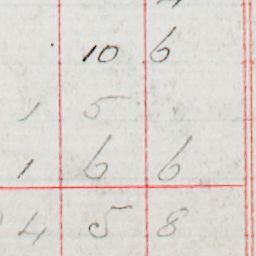 10 6
1 5
1 6 6
4 5 8